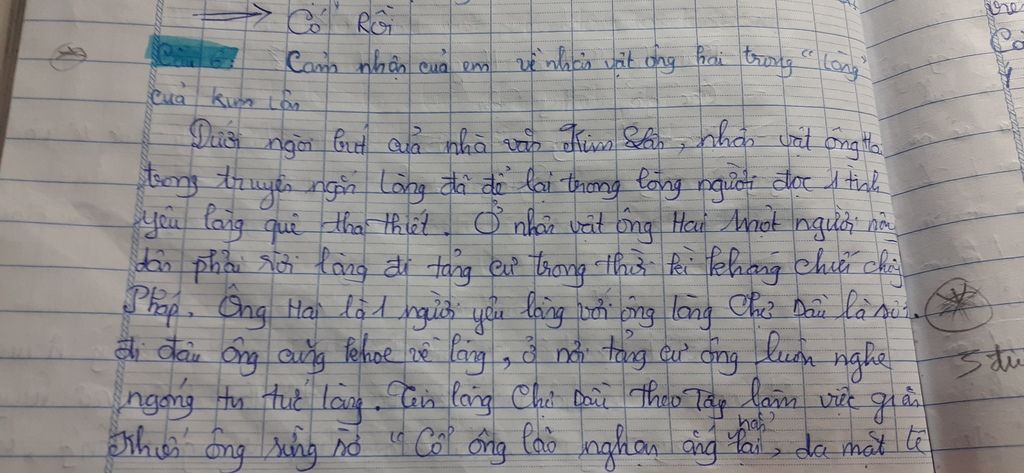 Có Rồi
Câu 6: Cảm nhận của em về nhân vật ông hai trong "Làng"
của kim lân
Dưới ngòi bút của nhà văn Kim Lân, nhân vật ông Hai
trong truyện ngắn Làng đã để lại trong lòng người đọc 1 tình
yêu làng quê tha thiết. Ở nhân vật ông Hai một người nông
dân phải rời làng đi tảng cư trong thời kì kháng chiến chống
Pháp. Ông Hai là 1 người yêu làng với ông làng Chợ Dầu là
đi đâu ông cũng khoe về làng, ở nơi tảng cư ông luôn nghe
ngóng tin tức làng. Tin làng Chợ Dầu theo Tây làm việt gian
khiến ông sững sờ "Cổ ông lão nghẹn ắng hẳn lại, da mặt tê